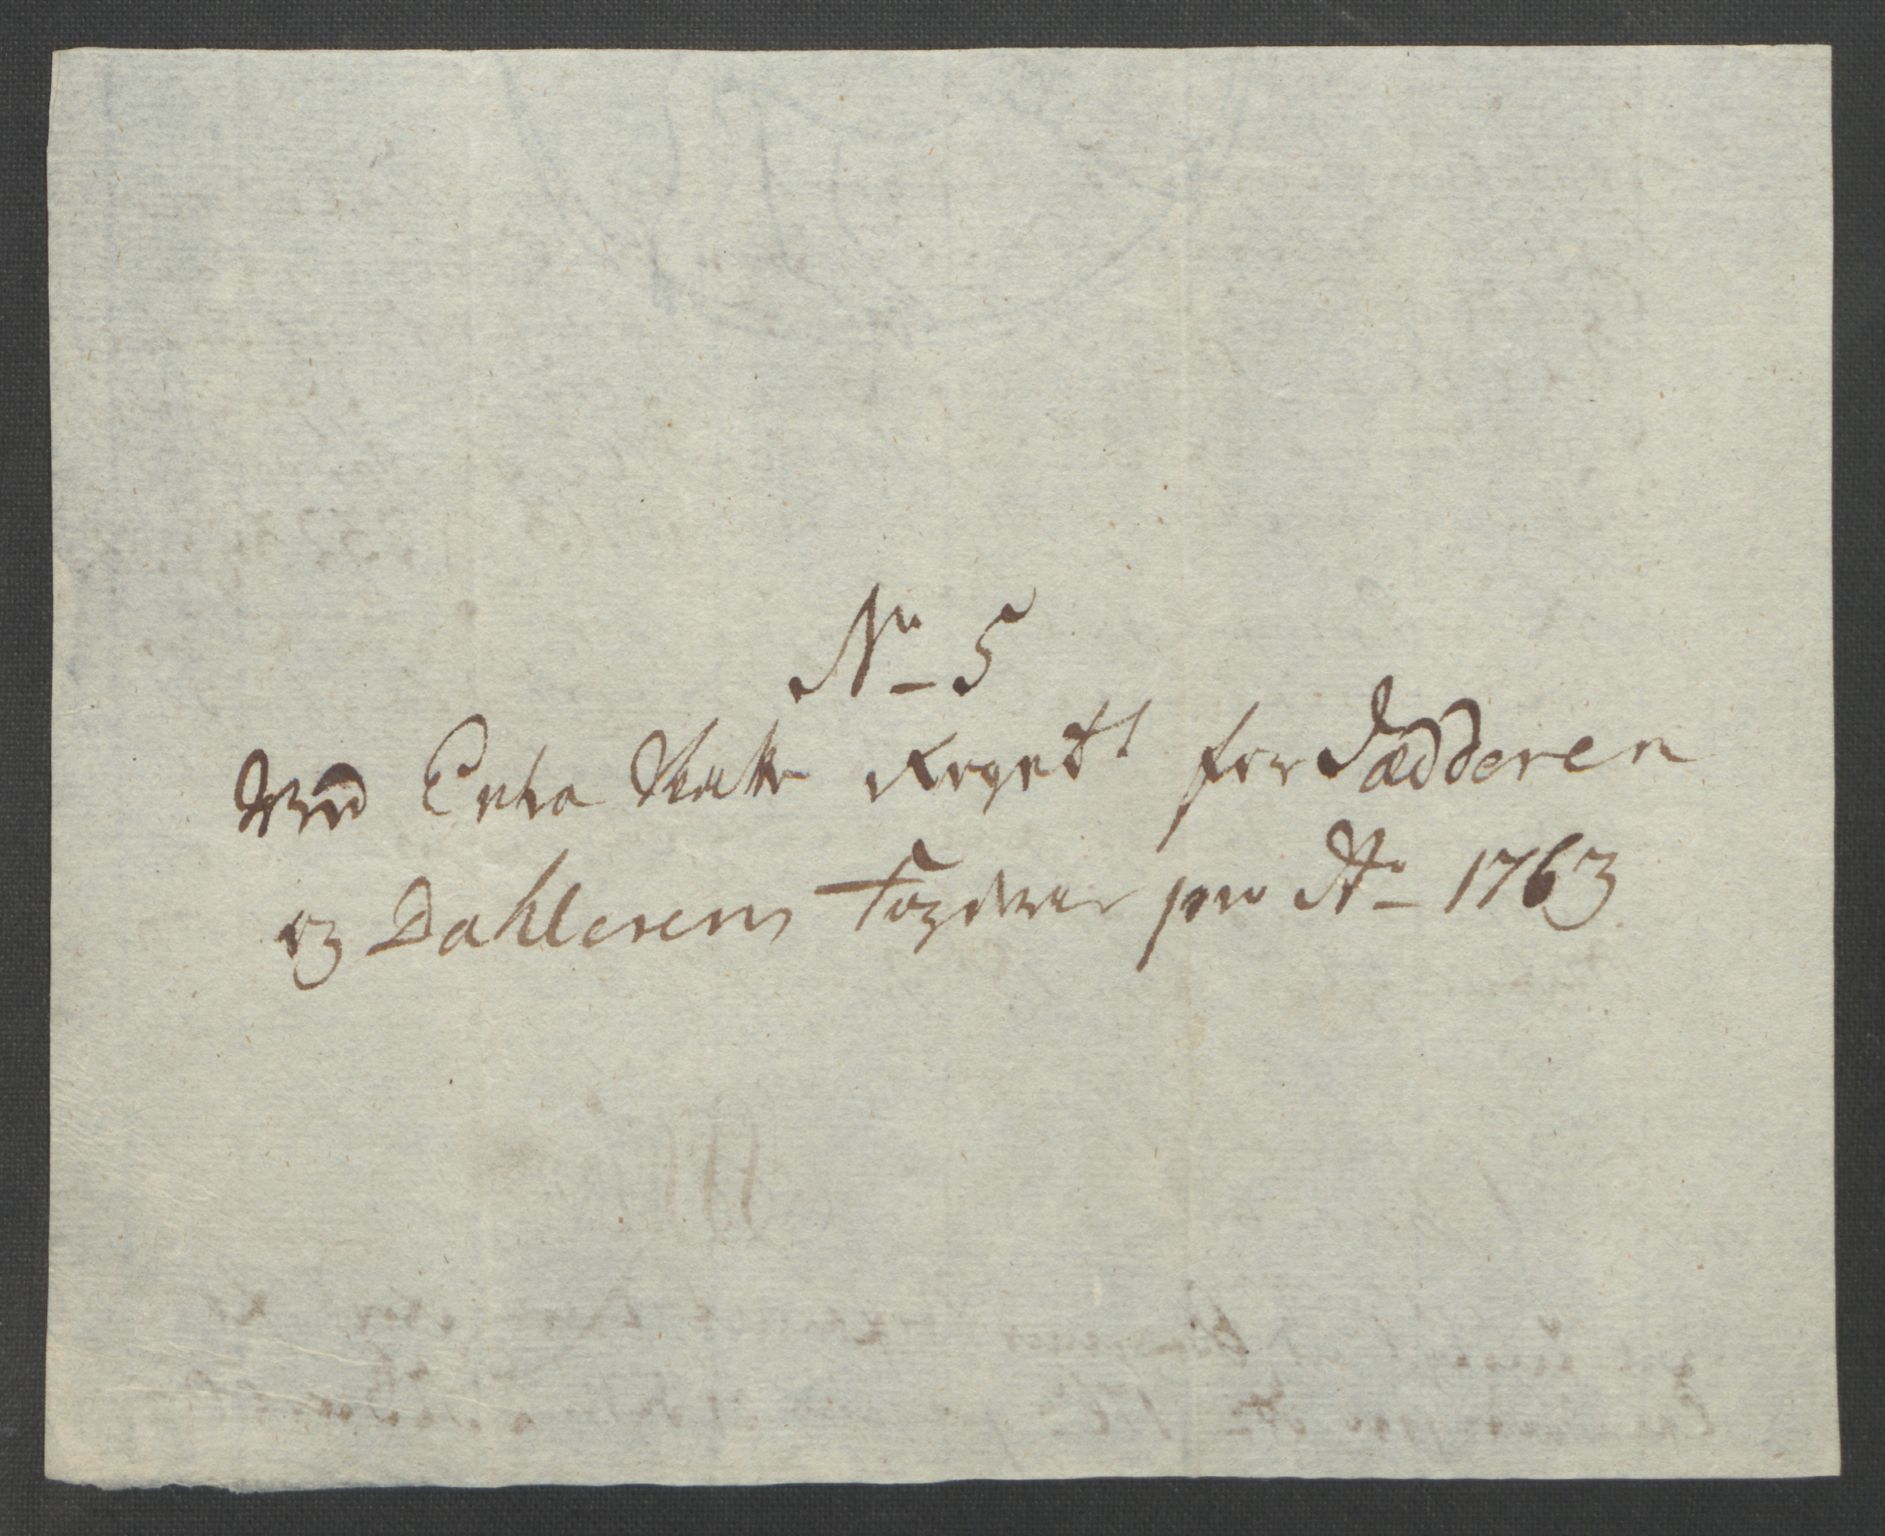 No 5
Ved Extra Skatte Regnsk: for Jædderen
og Dahlernes Fogderie pro Ao 1763